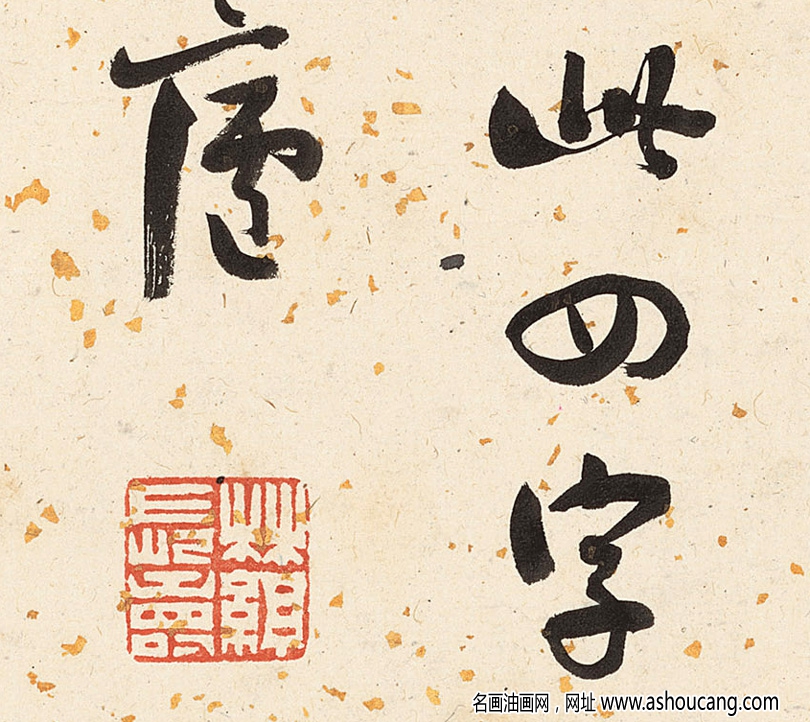 此四字
廬
名画油画网，网址 www.ashoucang.com